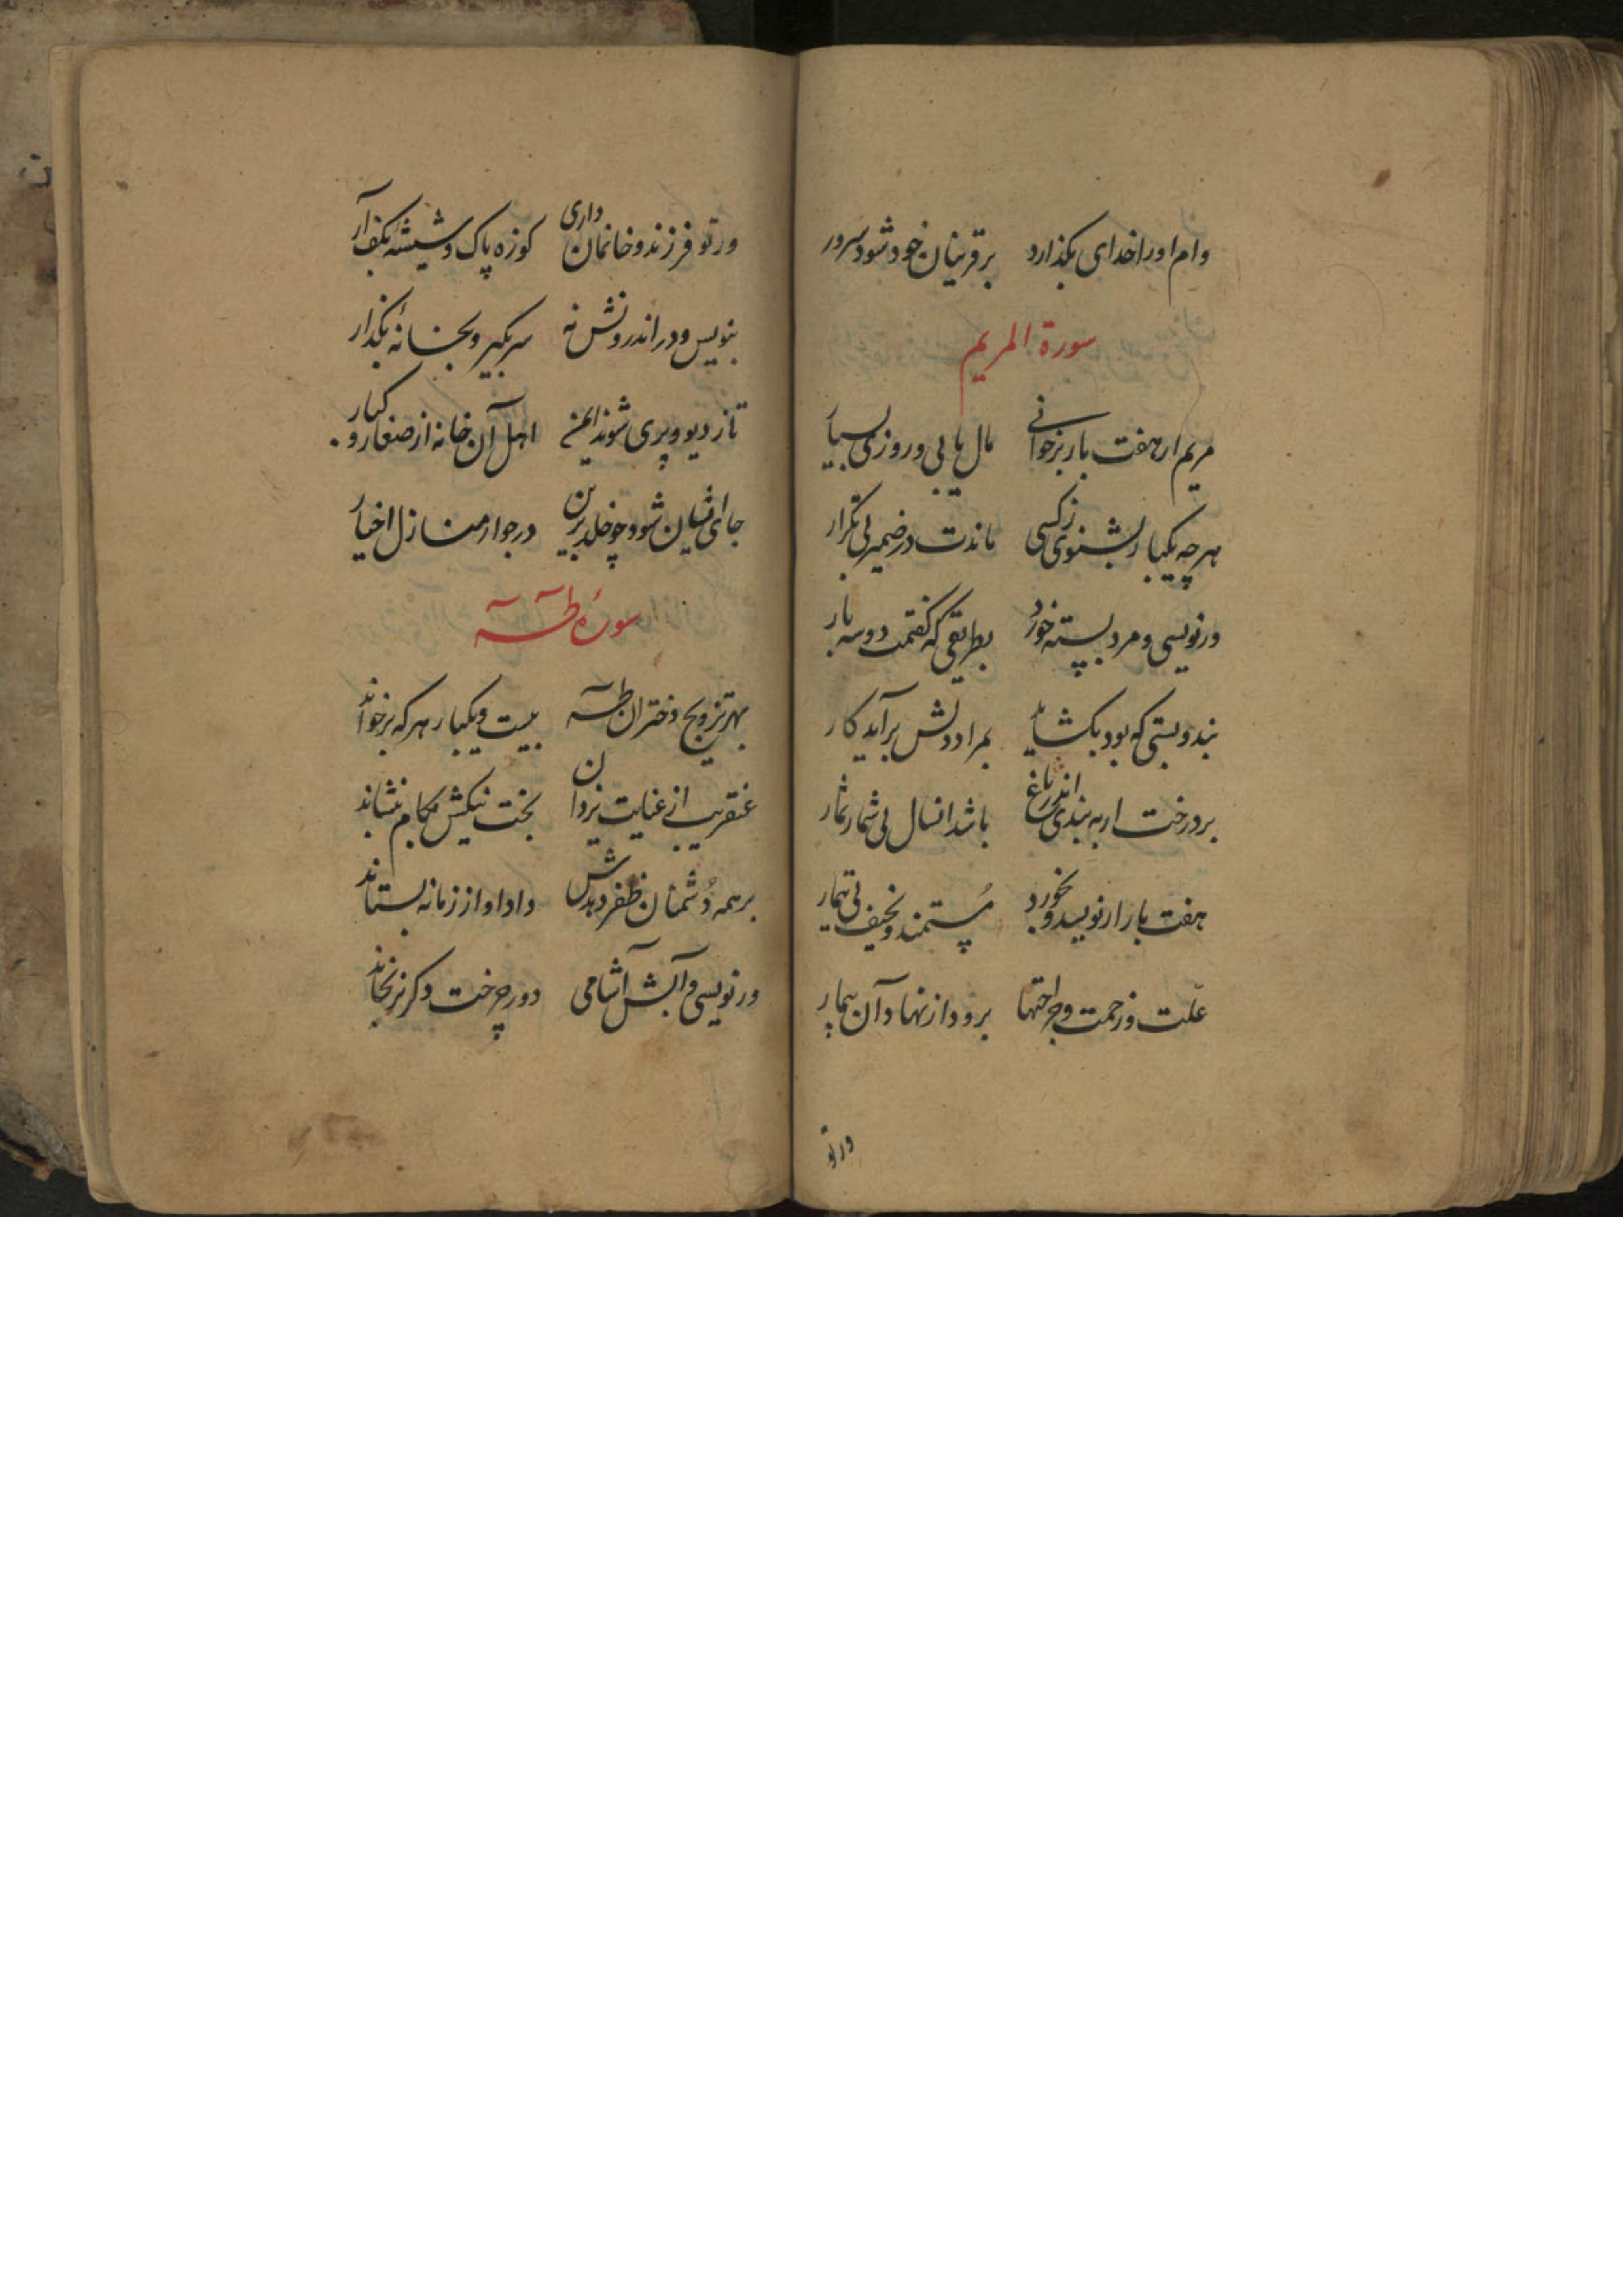 وام او را خدای بگذارد بر قرینان خود شود سرور
سورة المریم
مریم ار هفت بار برخوانی مال یابی و روزی بسیار
هرچه یکبار بشنوی ز کسی ماندت در ضمیر بی تکرار
ور نویسی و مرد بسته خورد بطریقی که گفتمت دو سه بار
بند و بستی که بود بکشاید بمراد دلش برآید کار
بر درخت ار به بندی اندر باغ باشد انسال بی شمار ثمار
هفت بار ار نویسد و بخورد مستمند و نحیف بی تیمار
علّت و زحمت و جراحتها برود از نهاد آن بیمار
ور تو
ور تو فرزند و خانمان داری کوزه پاک و شیشه بکف آر
بنویس و در اندرونش نه سر بگیر و بخانهٔ بگذار
تا ز دیو و پری شوند ایمن اهل آن خانه از صغار و کبار
جای ایشان شود چو خلد برین در جوار منازل اخیار
سورهٔ طٓهٓ
بهر تزویج دختران طٓه بیست و یکبار هر که برخواند
عنقریب از عنایت یزدان بخت نیکش بکام بنشاند
بر همه دُشمنان ظفر دهدش داد او از زمانه بستاند
ور نویسی و آبش آشامی دور چرخت دگر نرنجاند